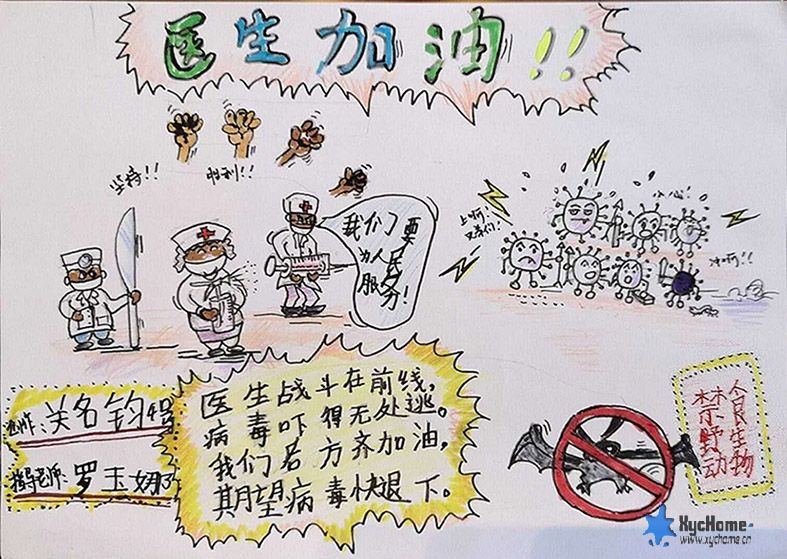 医生加油!!
坚持!!
胜利!!
我们要
为人民
服务!
上啊!
兄弟们!
小心!
冲啊!!
关名钧4号
指导老师:罗玉娜
医生战斗在前线,
病毒吓得无处逃。
我们各方齐加油,
期望病毒快退下。
禁食
野生
动物
XycHome
www.xychome.cn